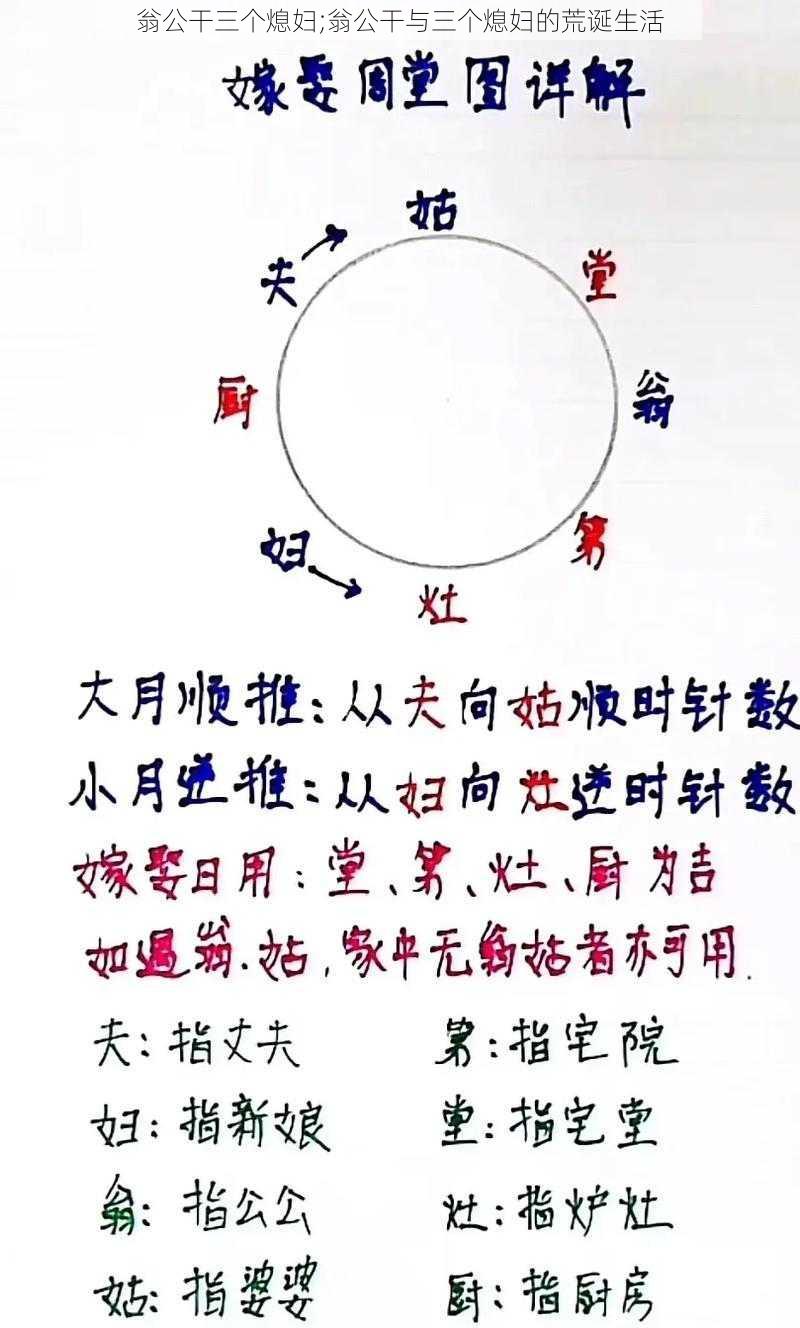 翁公干三个熄妇;翁公干与三个熄妇的荒诞生活
嫁娶周堂图详解
姑
夫
堂
厨
翁
妇
第
灶
大月顺推:从夫向姑顺时针数
小月逆推:从妇向灶逆时针数
嫁娶日用:堂、第、灶、厨为吉
如遇翁.姑,家中无翁姑者亦可用.
夫:指丈夫 第:指宅院
妇:指新娘 堂:指宅堂
翁:指公公 灶:指炉灶
姑:指婆婆 厨:指厨房